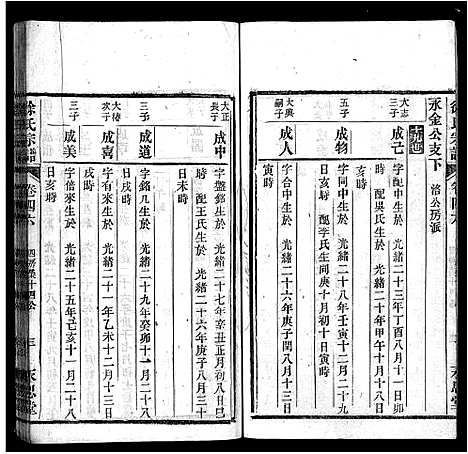 永金公支下 洛公房派
十九世
大志三子
成己
字配中生於 光緒二十三年丁酉八月十一日卯
時 配吳氏生於 光緒二十年甲午十月十日
五子
成物
字同中生於 光緒二十八年壬寅十二月二十九
時 配李氏生於同庚十月初十日寅時
大興嗣子
成人
字合中生於 光緒二十六年庚子閏八月十三日
寅時
大正長子
成中
字盤銘生於 光緒二十七年辛丑正月初八日巳
時 配王氏生於 光緒二十六年庚子八月三十
日未時
三子
成道
字銘几生於 光緒二十九年癸卯十一月十八
日戌時
大待次子
成喜
字有來生於 光緒二十一年乙未十二月十三日
時
三子
成美
字倍來生於 光緒二十五年己亥十一月二十八
日亥時
徐氏宗譜
卷四六
三